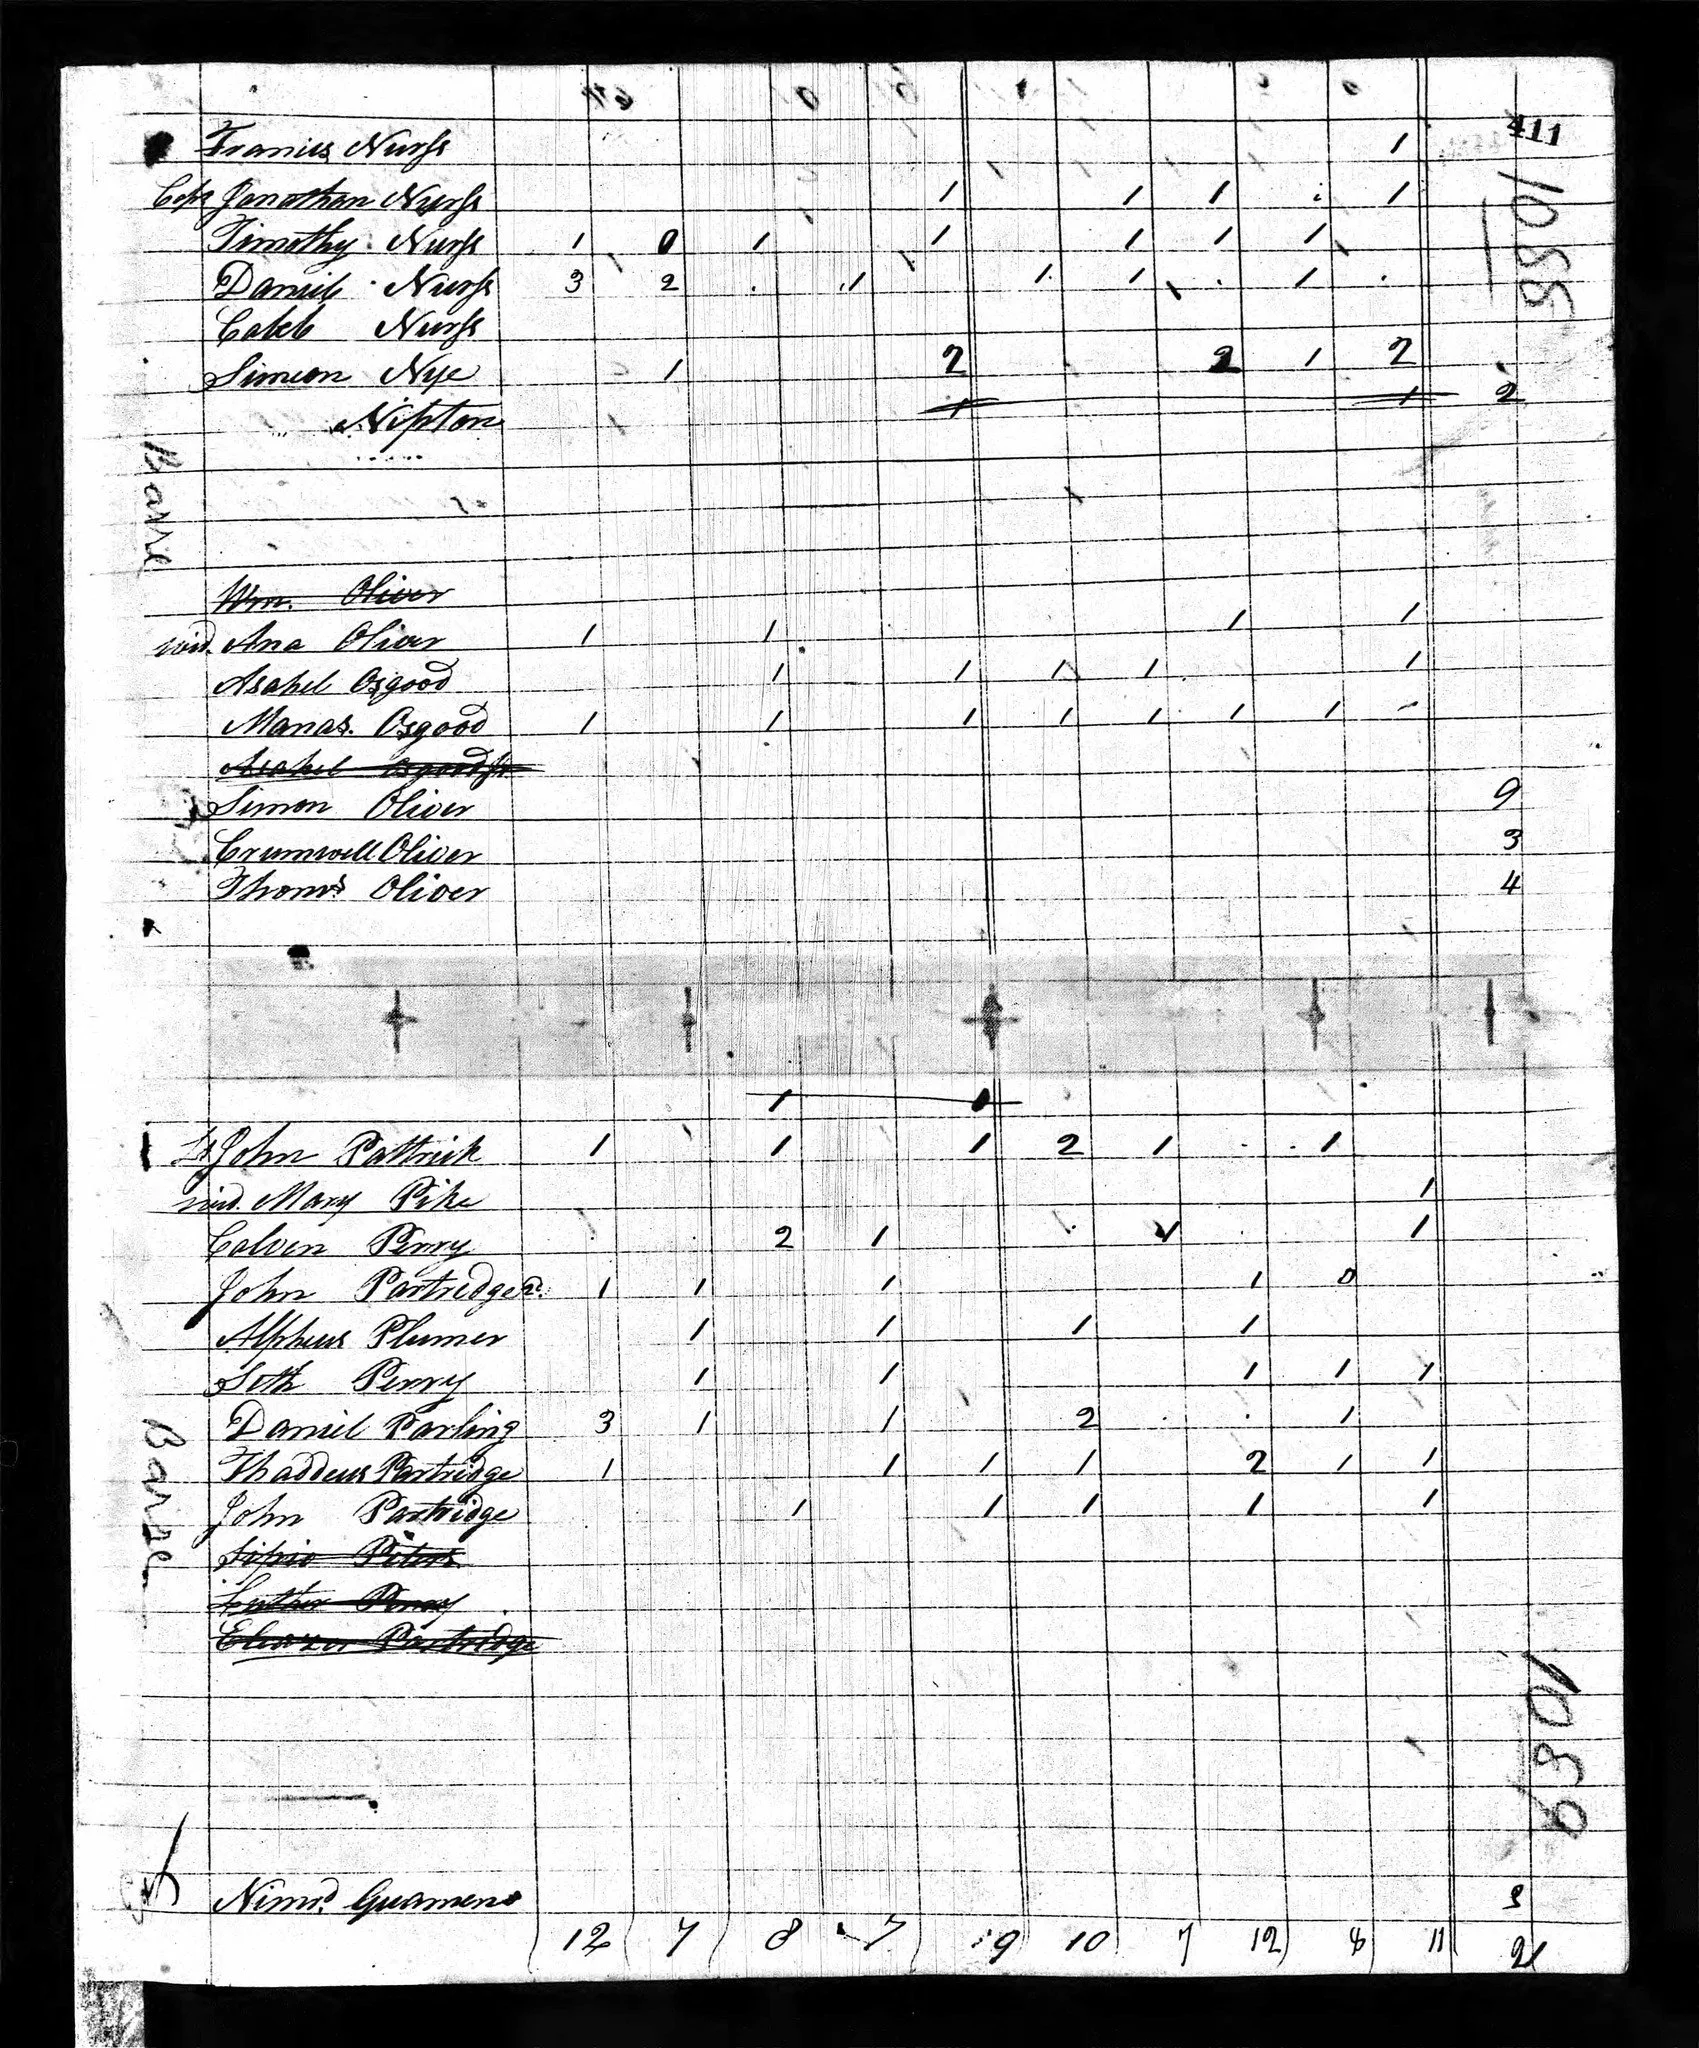 411
Francis Nurss 1
Capt Jonathan Nurss 1 1 1 1
Timothy Nurss 1 0 1 1 1 1 1
Daniel Nurss 3 2 1 1 1 1
Caleb Nurss
Simeon Nye 1 2 2 1 2
Nipton 1 1 2
1088
Barre
Wm. Oliver
wid. Ana Oliver 1 1 1 1
Asahel Osgood 1 1 1 1 1
Manas. Osgood 1 1 1 1 1 1 1
Asahel Osgood Jr
Simon Oliver 9
Crumwell Oliver 3
Thoms Oliver 4
1 0
Lt John Pattrick 1 1 1 2 1 1
wid. Mary Pike 1
Calven Perry 2 1 1
John Partridge 2d. 1 1 1 1 0
Alpheus Plumer 1 1 1 1
Seth Perry 1 1 1 1 1
Daniel Parling 3 1 1 2 1
Thaddeus Partridge 1 1 1 1 2 1 1
John Partridge 1 1 1 1 1
Sipio Peters
Luther Perry
Eleazer Partridge
Barre
1089
Nimrd. Guameno 3
12 7 8 7 9 10 7 12 8 11 21